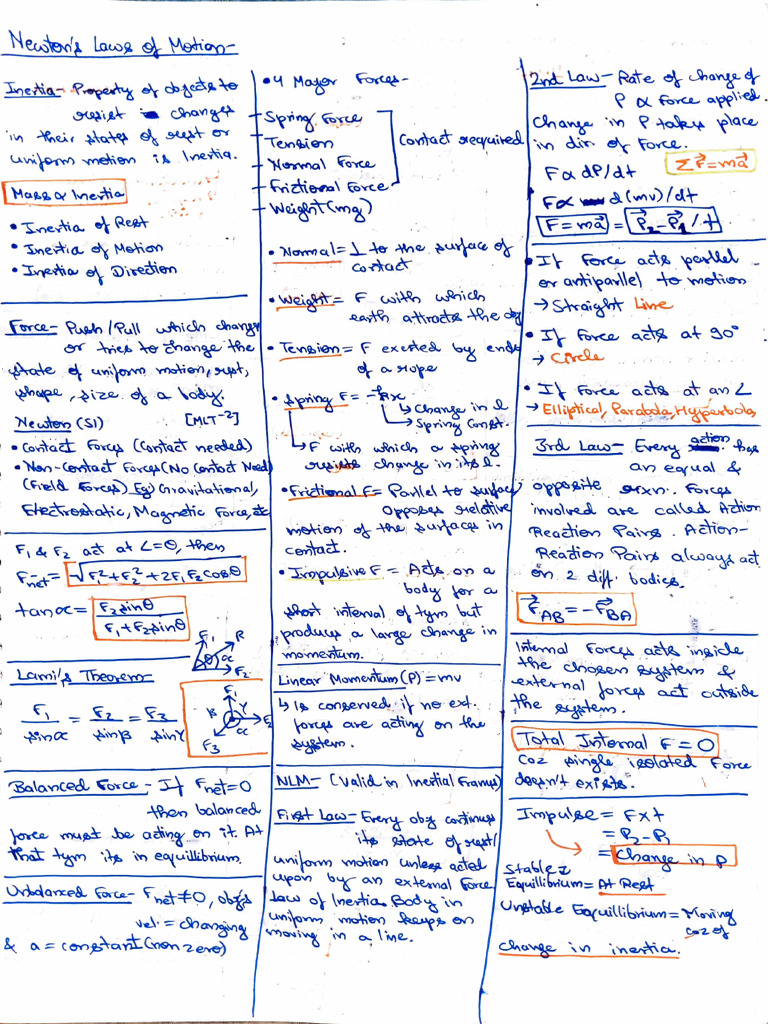 Newton's Laws of Motion-
Inertia- Property of objects to
resist changes
in their states of rest or
uniform motion is Inertia.
Mass ∝ Inertia
• Inertia of Rest
• Inertia of Motion
• Inertia of Direction
Force- Push/Pull which change
or tries to change the
state of uniform motion, rest,
shape, size of a body.
Newton (SI) [MLT⁻²]
• Contact Forces (Contact needed)
• Non-Contact Forces (No Contact Need)
(Field Forces) Eg: Gravitational,
Electrostatic, Magnetic Force, etc
F₁ & F₂ act at ∠=θ, then
Fnet = √F₁²+F₂²+2F₁F₂cosθ
tanα = F₂sinθ / F₁+F₂sinθ
F₁ R
θ α F₂
Lami's Theorem-
F₁/sinα = F₂/sinβ = F₃/sinγ
F₁
β γ F₂
α
F₃
Balanced Force - If Fnet=0
then balanced
force must be acting on it. At
that tym its in equillibrium.
Unbalanced Force- Fnet≠0, obj's
vel. = changing
& a = constant (non zero)
• 4 Major Forces-
Spring Force
Tension
Normal Force
Frictional Force
Contact required
Weight (mg)
• Normal = ⊥ to the surface of
contact
• Weight = F with which
earth attracts the obj
• Tension = F exerted by ends
of a rope
• Spring F = -kx
↳ Change in l
↳ Spring Const.
↳ F with which a spring
resists change in its l.
• Frictional F = Parllel to surface,
opposes relative
motion of the surfaces in
contact.
• Impulsive F = Acts on a
body for a
short interval of tym but
produces a large change in
momentum.
Linear Momentum (P) = mv
↳ Is conserved if no ext.
forces are acting on the
system.
NLM- (Valid in Inertial Frames)
First Law- Every obj continues
its state of rest/
uniform motion unless acted
upon by an external Force
Law of Inertia. Body in
uniform motion keeps on
moving in a line.
2nd Law- Rate of change of
P ∝ Force applied.
Change in P takes place
in dirn of Force.
F ∝ dP/dt
ΣF⃗=ma⃗
F ∝ d(mv)/dt
F = ma⃗ = P⃗₂-P⃗₁/t
• If Force acts parllel
or antiparllel to motion
→ Straight Line
• If Force acts at 90°
→ Circle
• If Force acts at an ∠
→ Elliptical, Parabola, Hyperbola
3rd Law- Every action has
an equal &
opposite rxn. Forces
involved are called Action
Reaction Pairs. Action-
Reaction Pairs always act
on 2 diff. bodies.
F⃗AB = -F⃗BA
Internal Forces acts inside
the chosen system &
external forces act outside
the system.
Total Internal F = 0
coz single isolated Force
doesn't exists.
Impulse = F×t
= P₂ - P₁
= Change in P
Stable
Equillibrium = At Rest
Unstable Equillibrium = Moving
coz of
change in inertia.